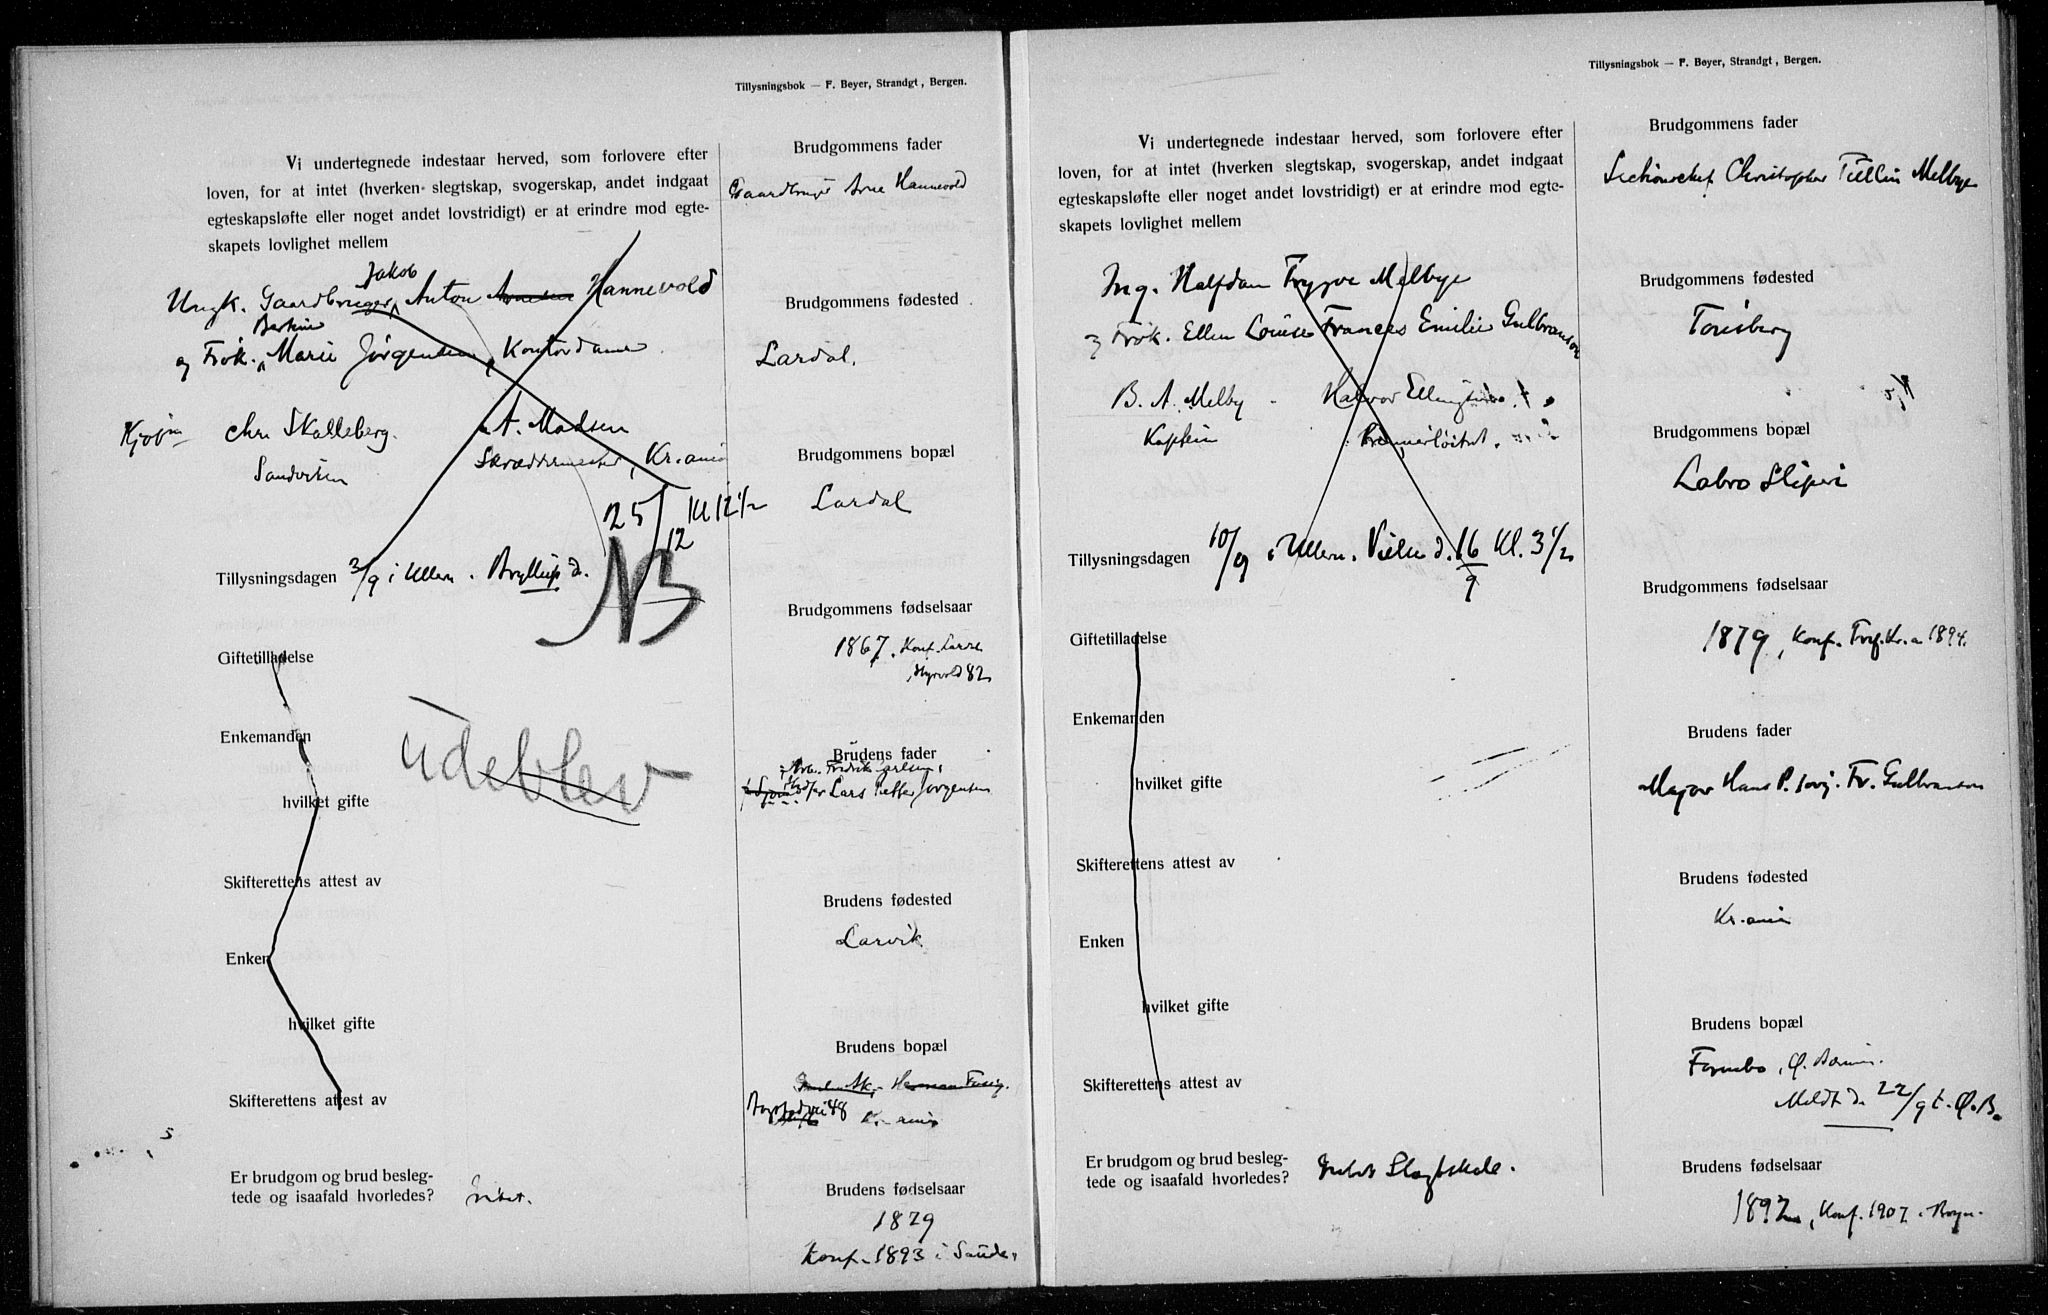 Tillysningsbok — F. Beyer, Strandgt, Bergen.
Vi undertegnede indestaar herved, som forlovere efter
loven, for at intet (hverken slegtskap, svogerskap, andet indgaat
egteskapsløfte eller noget andet lovstridigt) er at erindre mod egte-
skapets lovlighet mellem
Jakob
Ungk. Gaardbruger, Anton Arnesen Hannevold
Berthine
og Frøk. Marie Jørgensen, Kontordame
Kjøbm chr. Skalleberg. A. Madsen
Sandviken Skræddermester, Kr.ania
25/12 Kl 12 1/2
Tillysningsdagen 3/9 i Ullern. Bryllup d.
NB
Giftetilladelse
Enkemanden
udeblev
hvilket gifte
Skifterettens attest av
Enken
hvilket gifte
Skifterettens attest av
Er brudgom og brud besleg-
tede og isaafald hvorledes? Intet.
Brudgommens fader
Gaardbruger Arne Hannevold
Brudgommens fødested
Lardal.
Brudgommens bopæl
Lardal
Brudgommens fødselsaar
1867. Konf. 
82
Brudens fader
Lars Petter Jørgensen
Brudens fødested
Larvik
Brudens bopæl
48 Kr. ania
Brudens fødselsaar
1879
Konf. 1893 i 
Tillysningsbok — F. Beyer, Strandgt, Bergen.
Vi undertegnede indestaar herved, som forlovere efter
loven, for at intet (hverken slegtskap, svogerskap, andet indgaat
egteskapsløfte eller noget andet lovstridigt) er at erindre mod egte-
skapets lovlighet mellem
Ing. Halfdan Trygve Melbye
og Frøk. Ellen Louise Frances Emilie Gulbranson
B. A. Melby - Halvor
Kaptein Premierløitnt.
Tillysningsdagen 10/9 i Ullern. Vielse d. 16/9 Kl. 3 1/2
Giftetilladelse
Enkemanden
hvilket gifte
Skifterettens attest av
Enken
hvilket gifte
Skifterettens attest av
Er brudgom og brud besleg-
tede og isaafald hvorledes? Intet Slegtskab.
Brudgommens fader
Sectionschef Christopher Tullin Melbye
Brudgommens fødested
Tønsberg
Brudgommens bopæl
Labro Sliperi
Brudgommens fødselsaar
1879, Konf. Kr.a 1894.
Brudens fader
Major Hans P. Fr. Gulbranson
Brudens fødested
Kr.ania
Brudens bopæl
Fornebo, Ø. Bærum.
Meldt d. 22/9 t. Ø. B.
Brudens fødselsaar
1892, Konf. 1907